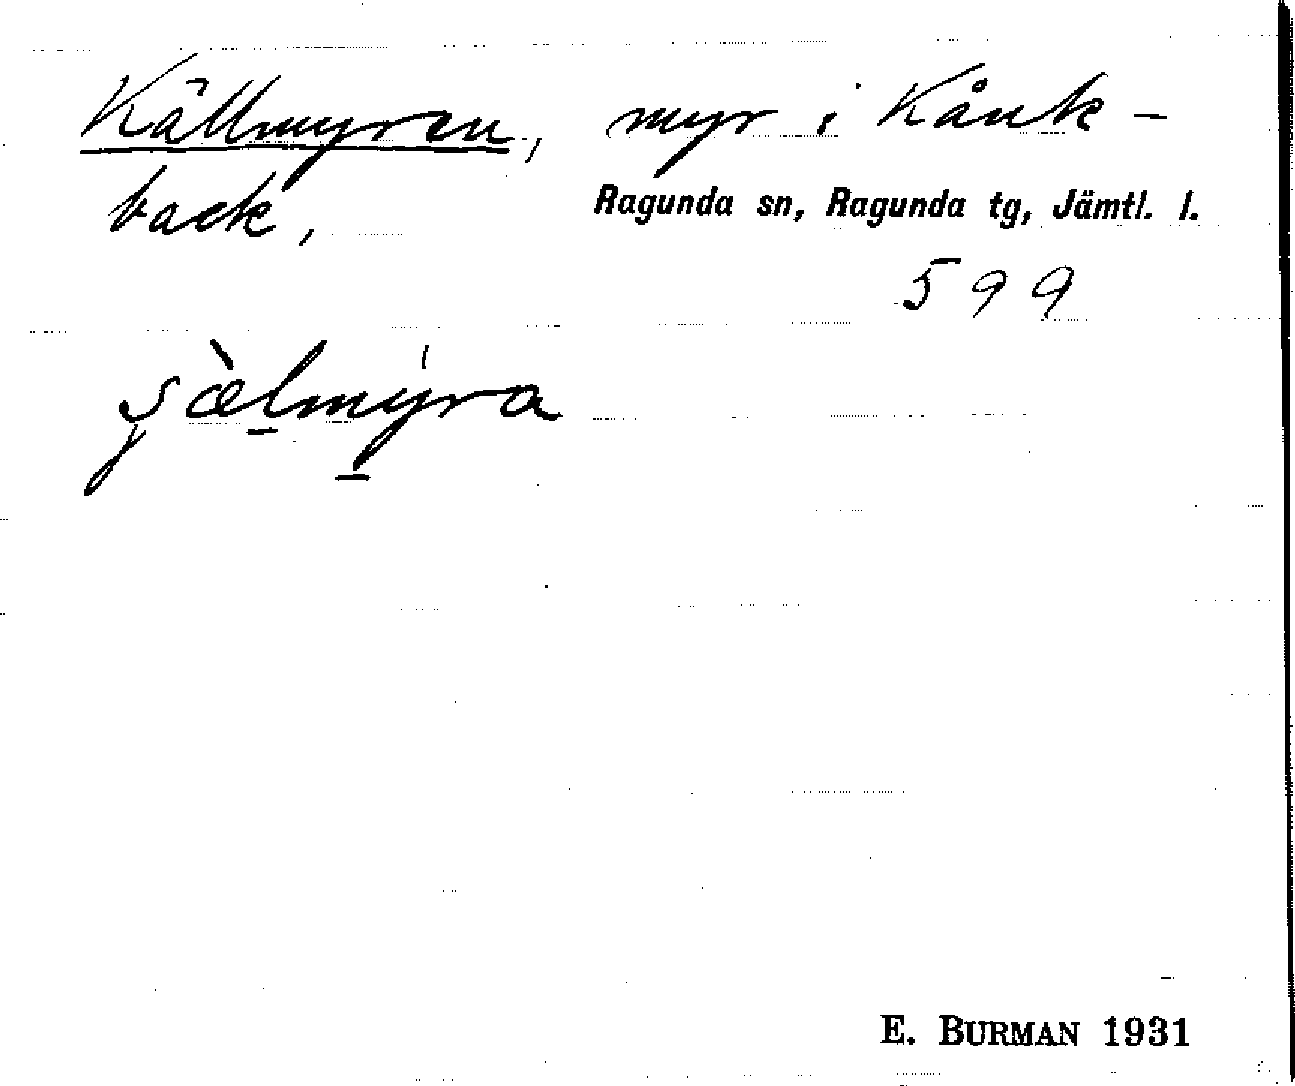 Källmyren, myr i Kånk-
back, Ragunda sn, Ragunda tg, Jämtl. l.
599
E. BURMAN 1931